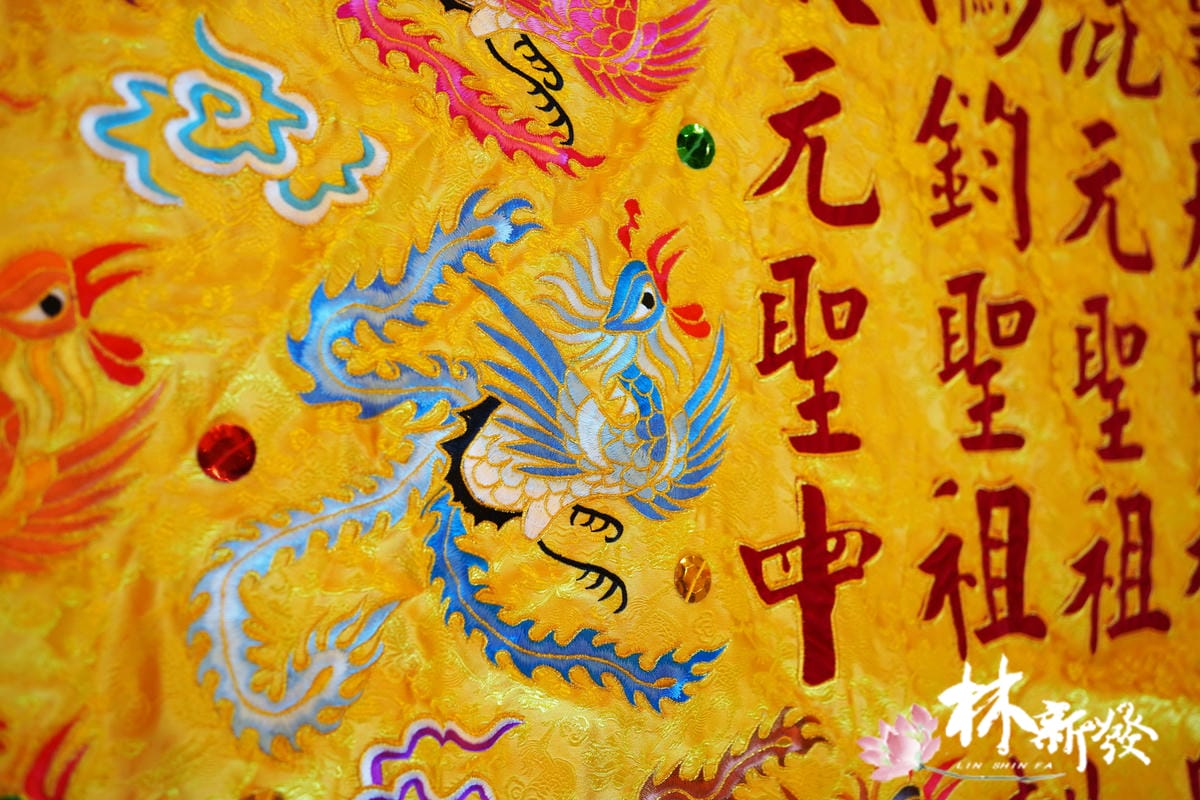 元聖祖
鈞聖祖
元聖中
林新發
LIN SHIN FA